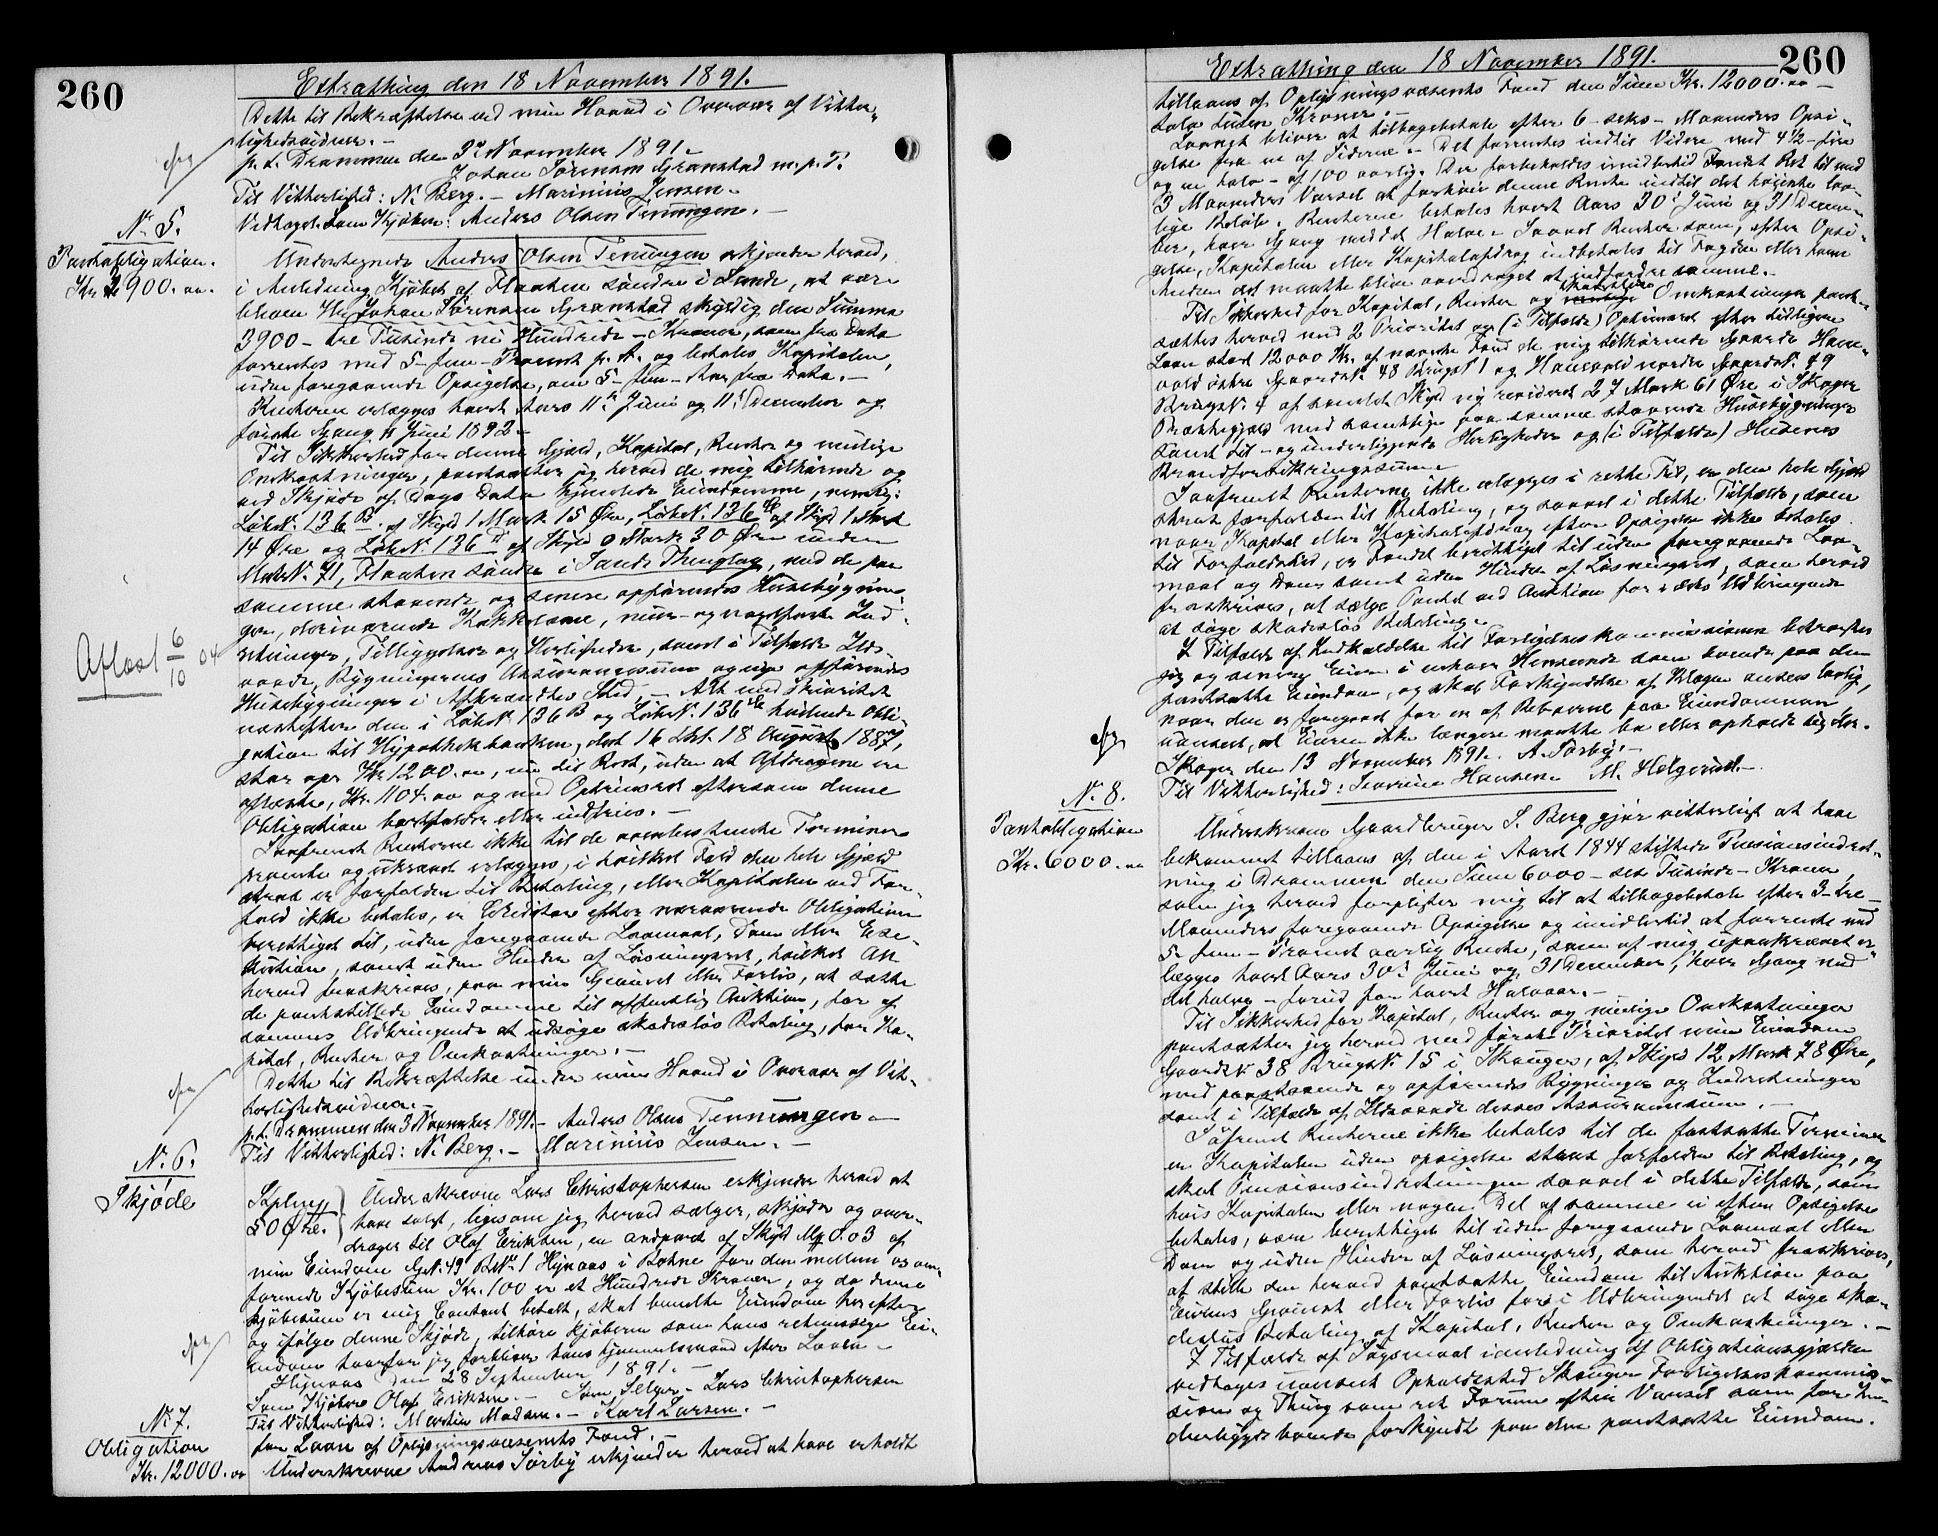 260
Extrathing den 18 November 1891.
Dette til Bekræftelse ved min Haand i Overvær af Vitter-
lighedsvidner. –
p. t. Drammen den 3de November 1891. –
Johan Sörensen Granstad m. p. P.
Til Vitterlighed: N. Berg. – Marinius Jensen. –
Vedtaget Som Kjøber: Anders Olsen Tenningen. –
No. 5.
Pantobligation.
Kr. 3900. oo.
Undertegnede Anders Olsen Tenningen erkjender herved,
i Anledning Kjøbet af Flaaten søndre i Sande, at være
bleven Hr. Johan Sörensen Granstad skyldig den Summa
3900 – tre Tusinde ni Hundrede – Kroner, som fra Dato
forrentes med 5 – fem – Procent p. A. og betales Kapitalen,
uden foregaaende Opsigelse, om 5 – fem – Aar fra Dato. –
Renterne erlægges hvert Aars 11te Juni og 11te December og
første Gang 11 Juni 1892. –
Til Sikkerhed for denne Gjæld, Kapital, Renter og mulige
Omkostninger, pantsætter jeg herved de mig tilhørende og
ved Skjøde af Dags Dato hjemlede Eiendomme, nemlig:
Løbe No. 136 B af Skyld 1 Mark 15 Øre, Løbe No. 136 af Skyld 1 Mark
14 Øre og Løbe No. 136 af Skyld 0 Mark 30 Øre under
Matr. No. 71, Flaaten søndre i Sande Thinglag, med de paa
samme staaende og senere opførendes Husebygnin-
ger, derværende Kakkelovne, mur- og nagelfaste Ind-
retninger, Tilliggelser og Herligheder, samt i Tilfælde Ilds-
vaade, Bygningernes Assurancesum og nye opførendes
Husebygninger i Afbrændtes Sted, – Alt med Prioritet
næstefter den i Løbe No. 136 B og Løbe No. 136 heftende Obli-
gation til Hypothekbanken, dat 16 thl. 18 August 1887,
stor opr. Kr. 1200. oo, nu til Rest, uden at Afdragene ere
aflæste, Kr. 1104. oo og med Oprykningsret eftersom denne
Obligation bortfalder eller indfries. –
Aflæst 6/10 04
Saafremt Renterne ikke til de ovenbestemte Terminer
præcise og ukrævet erlægges, i hvilket Fald den hele Gjæld
strax er forfalden til Betaling, eller Kapitalen ved For-
fald ikke betales, er Creditor efter nærværende Obligation
berettiget til, uden foregaaende Lovmaal, Dom eller Exe-
kution, samt uden Hinder af Løsningsret, hvilket Alt
herved fraskrives, paa min Grund eller Forlis, at sætte
de pantstillede Eiendomme til offentlig Auktion, for af
sammes Udbringende at udsøge skadesløs Betaling, for Ka-
pital, Renter og Omkostninger. –
Dette til Bekræftelse under min Haand i Overvær af Vit-
terlighedsvidner. –
p. t. Drammen den 3 November 1891. – Anders Olsen Tenningen –
Til Vitterlighed: N. Berg. – Marinius Jensen. –
No. 6.
Skjøde
Stplmrk
50 Øre.
Underskrevne Lars Christophersen erkjender herved at
have solgt, ligesom jeg herved sælger, skjøder og over-
drager til Olaf Eriksen, en andpart af Skyld Mk 0.03 af
min Eiendom G.No. 49 B.No. 1 Hynaas i Botne for den mellem os om-
forenede Kjøbesum Kr. 100 er et Hundrede Kroner, og da denne
Kjøbesum er mig Contant betalt, skal bemeldte Eiendom herefter
og ifølge denne Skjøde, tilhøre Kjøberen som hans retmæssige Ei-
endom hvorfor jeg forbliver hans Hjemmelsmand efter Loven –
Hynaas den 28 September 1891. –
Som Kjøber Olaf Eriksen. – Som Selger – Lars Christophersen
Til Vitterlighed: Martin Madsen. – Karl Larsen. –
No. 7.
Obligation
Kr. 12000. oo
for Laan af Oplysningsvæsenets Fond. –
Underskrevne Andreas Sørby erkjender herved at have erholdt
260
Extrathing den 18 November 1891.
tillaans af Oplysningsvæsenets Fond den Sum Kr. 12000. oo –
tolv tusen Kroner. –
Laanet bliver at tilbagebetale efter 6 – seks – Maaneders Opsi-
gelse fra en af Siderne. – Det forrentes indtil Videre med 4 1/2 – fire
og en halv – af 100 aarlig. Der forbeholdes imidlertid Fondet Ret til med
3 Maaneders Varsel at forhøie denne Rente indtil det høieste lov-
lige Beløb. Renterne betales hvert Aars 30te Juni og 31 Decem-
ber, hver Gang med det Halve. Saavel Renter som, efter Opsi-
gelse, Kapitalen eller Kapitalafdrag indbetales til Fogden eller hvem
Anden det maatte blive overdraget at indfordre samme. –
Til Sikkerhed for Kapital, Renter og skadesløse Omkostninger pant-
sættes herved med 2 Prioritet og (i Tilfælde) Oprykningsret efter tidligere
Laan stort 12000 Kr. af nævnte Fond de mig tilhørende Gaarde Hane-
vold østre Gaards No. 48 Brugs No. 1 og Hanevold nordre Gaards No. 49
Brugs No. 4 af samlet Skyld ny revideret 27 Mark 61 Øre i Skoger
Præstegjæld med samtlige paa samme staaende Husebygninger
samt til- og underliggende Herligheder og (i Tilfælde) Husenes
Brandforsikringssum. –
Saafremt Renterne ikke erlægges i rette Tid, er den hele Gjæld
strax forfalden til Betaling, og saavel i dette Tilfælde, som
naar Kapital eller Kapitalafdrag efter Opsigelse ikke betales
til Forfaldstid, er Fondet berettiget til uden foregaaende Lov-
maal og Dom samt uden Hinder af Løsningsret, som herved
fraskrives, at sælge Pantet ved Auktion for i dets Udbringende
at søge skadesløs Betaling. –
I Tilfælde af Indkaldelse til Forligelseskommissionen betragtes
jeg og senere Eiere i enhver Henseende som boende paa den
pantsatte Eiendom, og skal Forkyndelse af Klagen ansees lovlig,
naar den er foregaaet for en af Beboerne paa Eiendommen,
uanseet, at Eieren ikke længere maatte bo eller opholde sig der. –
Skoger den 13 November 1891. – A. Sørby. –
Til Vitterlighed: Severine Hansen. M. Helgerud. –
No. 8.
Pantobligation
Kr. 6000. oo
Underskrevne Gaardbruger S. Berg gjør vitterligt at have
bekommet tillaans af den i Aaret 1844 stiftede Pensionsindret-
ning i Drammen den Sum 6000 – sex Tusinde – Kroner,
som jeg herved forpligter mig til at tilbagebetale efter 3 – tre –
Maaneders foregaaende Opsigelse og imidlertid at forrente med
5 – fem – Procent aarlig Rente, som af mig upaakrævet er-
lægges hvert Aars 30te Juni og 31 December, hver Gang med
det halve – forud for hvert Halvaar. –
Til Sikkerhed for Kapital, Renter og mulige Omkostninger
pantsætter jeg herved med første Prioritet min Eiendom
Gaards No. 38 Brugs No. 15 i Skouger, af Skyld 12 Mark 78 Øre,
med paastaaende og opførendes Bygninger og Indretninger
samt i Tilfælde af Ildsvaade dennes Assurancesum. –
Saafremt Renterne ikke betales til de fastsatte Terminer
er Kapitalen uden opsigelse strax forfalden til Betaling, og
skal Pensionsindretningen saavel i dette Tilfælde, som
hvis Kapitalen eller nogen Del af samme ei efter Opsigelse
betales, være berettiget til uden foregaaende Lovmaal eller
Dom og uden Hinder af Løsningsret, som herved fraskrives,
at stille den herved pantsatte Eiendom til Auktion paa
Eierens Grund eller Forlis for i Udbringendet at søge ska-
desløs Betaling af Kapital, Renter og Omkostninger. –
I Tilfælde af Søgsmaal i anledning af Obligationsgjælden
vedtages uanseet Opholdssted Skouger Forligelseskommis-
sion og Thing som ret Forum efter Varsel som for In-
denbygds boende forkyndt paa den pantsatte Eiendom.